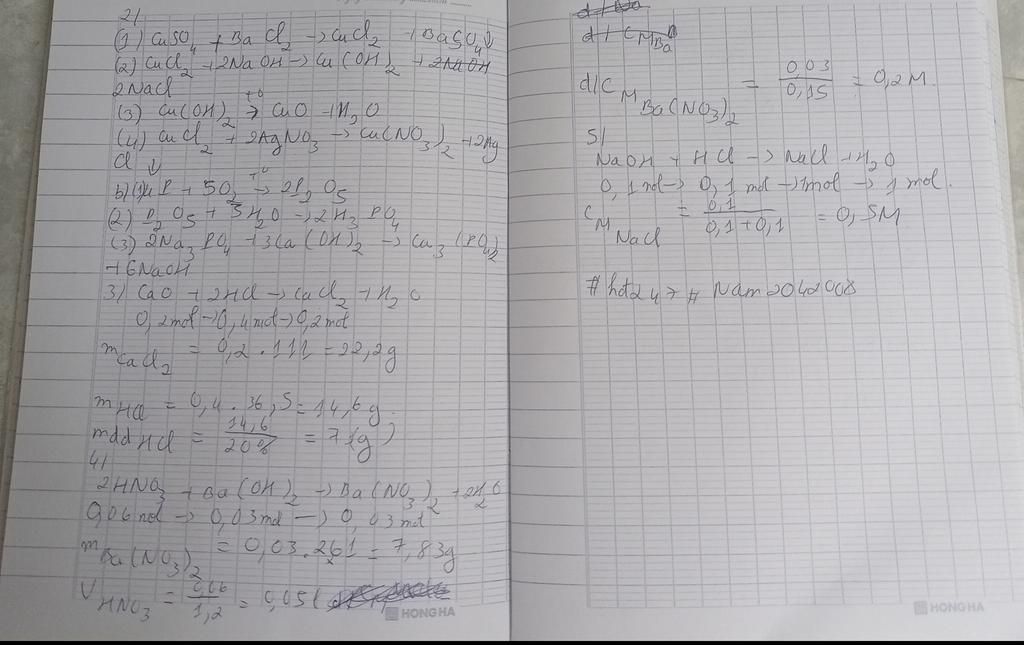 2/
(1) CuSO4 + BaCl2 → CuCl2 + BaSO4↓
(2) CuCl2 + 2NaOH → Cu(OH)2 +
2NaCl
(3) Cu(OH)2 →t° CuO + H2O
(4) CuCl2 + 2AgNO3 → Cu(NO3)2 + 2Ag
Cl ↓
b) (1) 4P + 5O2 →t° 2P2O5
(2) P2O5 + 3H2O → 2H3PO4
(3) 2Na3PO4 + 3Ca(OH)2 → Ca3(PO4)2
+ 6NaOH
3) CaO + 2HCl → CaCl2 + H2O
0,2mol → 0,4mol → 0,2mol
mCaCl2 = 0,2 . 111 = 22,2g
mHCl = 0,4 . 36,5 = 14,6g
mddHCl = 14,6/20% = 7(g)
4/
2HNO3 + Ba(OH)2 → Ba(NO3)2 + 2H2O
0,06mol → 0,03mol → 0,03mol
mBa(NO3)2 = 0,03.261 = 7,83g
VHNO3 = 0,06/1,2 = 0,05l
HONG HA
d/ CMBa
d/ CMBa(NO3)2 = 0,03/0,15 = 0,2M
5/
NaOH + HCl → NaCl + H2O
0,1mol → 0,1mol → 1mol → 1mol.
CMNaCl = 0,1/0,1+0,1 = 0,5M
#hot247 # Nam2042008
HONG HA